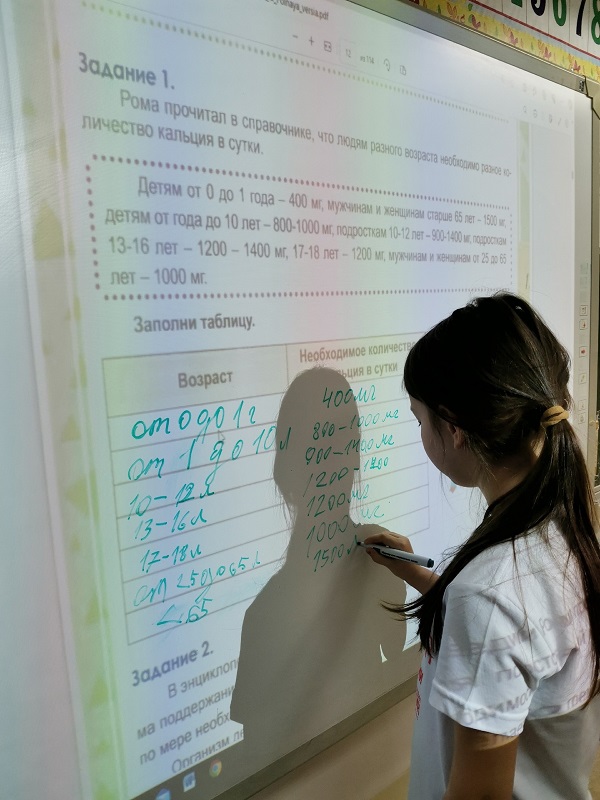 _versia.pdf
12 из 114
Задание 1.
Рома прочитал в справочнике, что людям разного возраста необходимо разное ко-
личество кальция в сутки.
Детям от 0 до 1 года – 400 мг, мужчинам и женщинам старше 65 лет – 1500 мг,
детям от года до 10 лет – 800-1000 мг, подросткам 10-12 лет – 900-1400 мг, подросткам
13-16 лет – 1200 – 1400 мг, 17-18 лет – 1200 мг, мужчинам и женщинам от 25 до 65
лет – 1000 мг.
Заполни таблицу.
Возраст
Необходимое количество
кальция в сутки
от 0 до 1 г 400 мг
от 1 до 10 л 800-1000 мг
10-12 л 900-1400 мг
13-16 л 1200-1400
17-18 л 1200 мг
от 25 до 65 л 1000 мг
<65 1500
Задание 2.
В энциклоп
ма поддержани
по мере необх
Организм